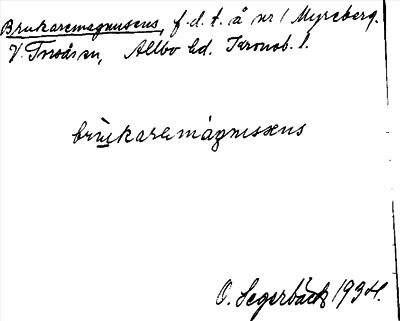 Brukaremagnusens, f.d.t. å nr 1 Myreberg.
V. Torsås sn, Allbo hd. Kronob. l.
brukaremágnussens
O. Segerbäck 1934.